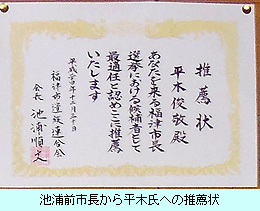 推薦状
平木俊敬殿
あなたを来る福津市長
選挙における候補者として
最適任と認めここに推薦
いたします
平成二十年十二月二十日
福津市遺族連合会
会長 池浦順文
池浦前市長から平木氏への推薦状